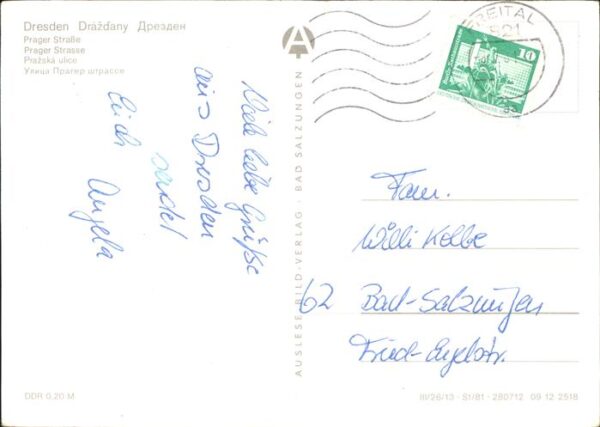 Dresden Drážďany Дрезден
Prager Straße
Prager Strasse
Pražská ulice
Улица Прагер штрассе
Viele liebe Grüße
aus Dresden
sendet
Euch Angela
AUSLESE-BILD-VERLAG · BAD SALZUNGEN
FREITAL
821
10
Fam.
Willi Kelbe
62 Bad-Salzungen
Fried-Engelstr.
DDR 0,20 M
III/26/13 · St/81 · 280712 09 12 2518